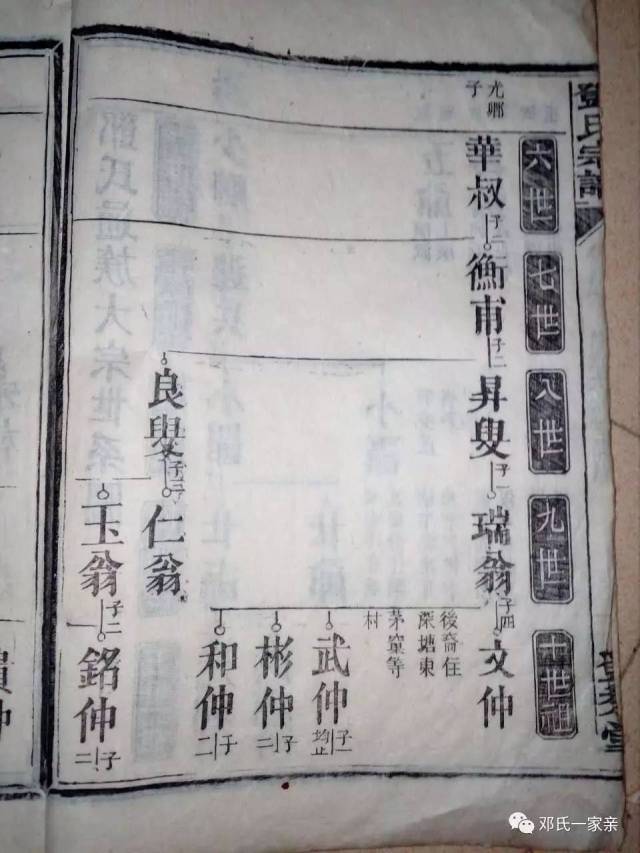 鄧氏宗譜
六世
七世
八世
九世
十世祖
光鄉子
華叔
子二
衡甫
子二
昇叟
子一
瑞翁
子四
文仲
後裔在
深塘東
茅窰等
村
武仲
子一
均正
彬仲
子二
和仲
子二
良叟
子三
仁翁
玉翁
子二
銘仲
子二
仲
邓氏一家亲